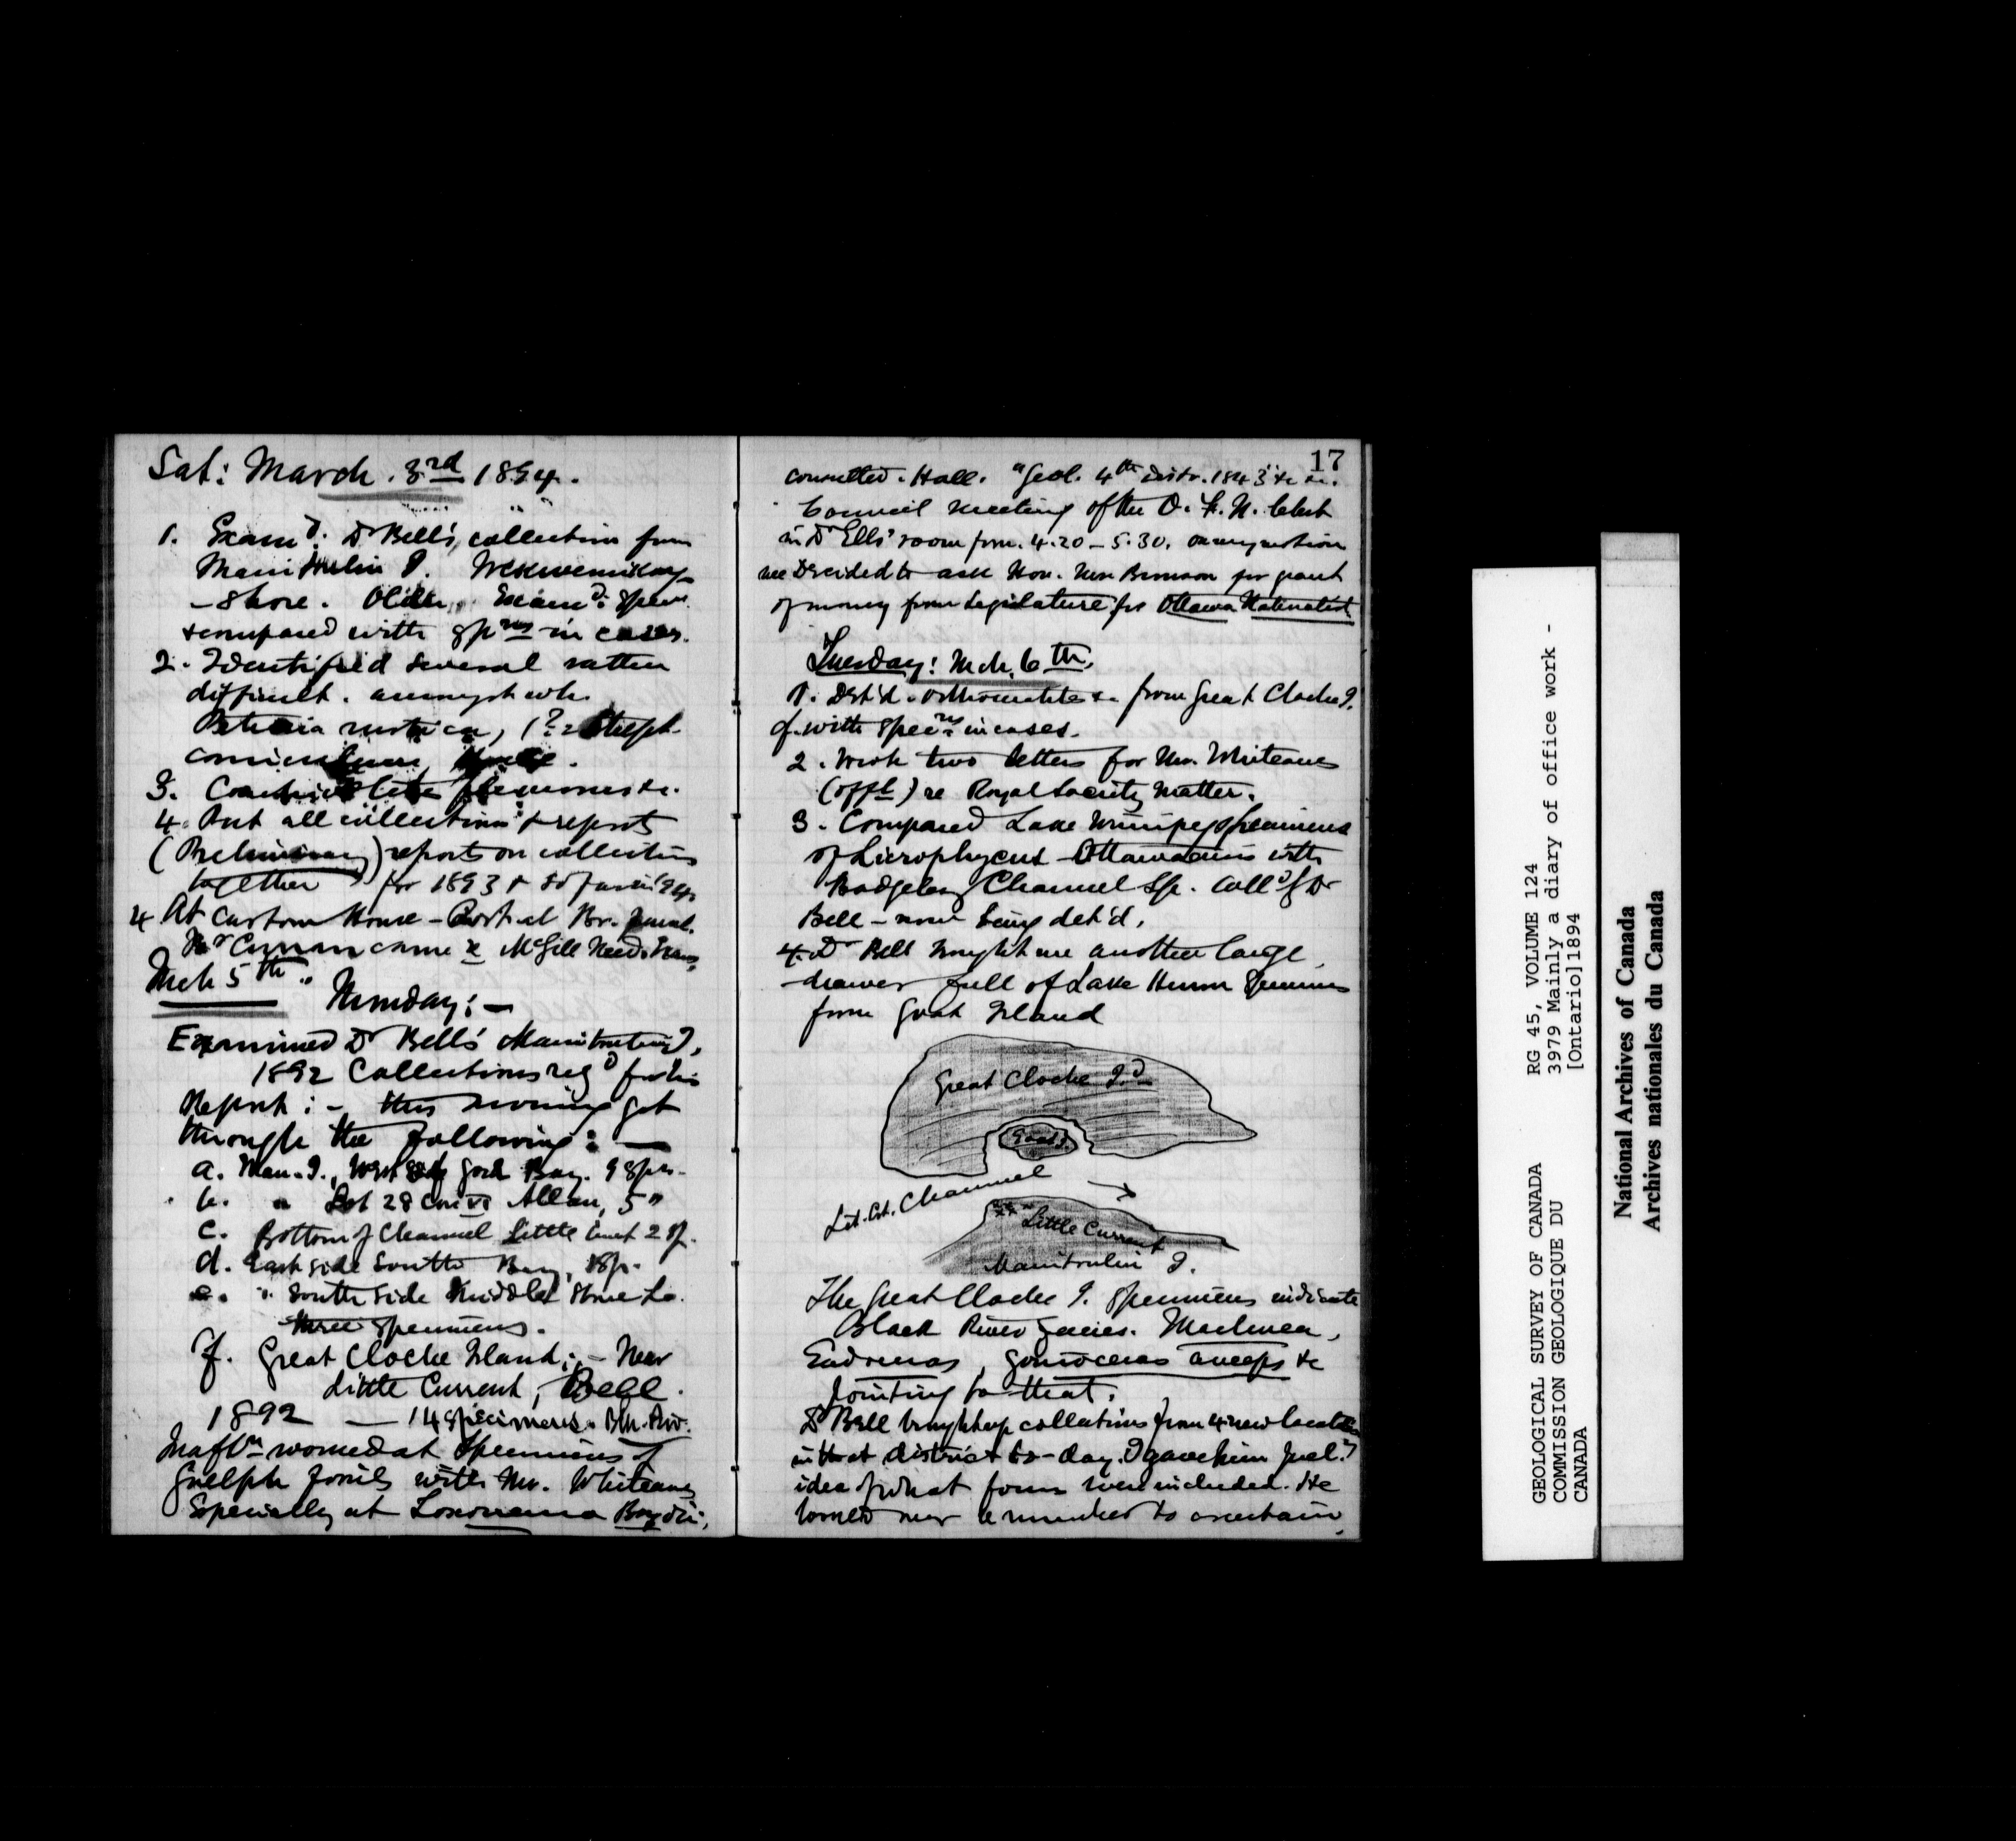 Sat: March. 3rd 1894.
1. Examd. Dr Bell's collection from
Manitoulin I. Wekwemikong
- Shore. Older, Examd. Spec.
& compared with spns in cases.
2. Identified several rather
difficult. amongst wh.
3. &c.
4. Put all collections & reports
(Preliminary) reports on collections
together for 1893 & so far in '94.
4 At Custom House -
Curran came re McGill
Mch 5th.
Monday: —
Examined Dr Bell's Manitoulin I.
1892 Collections reqd for his
Report: - this morning got
through the following: —
a. Man. I., West side Gore Bay. 9 sps.
b. " Lot 28 Con VI Allan, 5 "
c. Bottom of Channel Little Curt 2 sp.
d. East side South Bay, 1 sp.
e. " South side Middle
three specimens.
f. Great Cloche Island; - Near
Little Current, Bell.
1892 — 14 specimens. Blk. Riv.
In aftn worked at Specimens of
Guelph fossils with Mr. Whiteaves
Especially at Loxonema Boydii,
17
consulted. Hall. "Geol. 4th Distr. 1843" &c &c.
Council meeting of the O. F. N. Club
in Dr Ells' room from. 4.20 - 5.30. on my motion
we decided to ask Hon. Mr Bronson for grant
of money from Legislature for Ottawa Naturalist.
Tuesday: Mch. 6th.
1. Det'd. &c from Great Cloche I.
cf. with specns in cases.
2. Wrote two letters for Mr. Whiteaves
(offl) re Royal Society Matter.
3. Compared Lake Winnipeg specimens
of Licrophycus Ottawaensis with
Badgeley Channel Sp. Colld of Dr
Bell - now being det'd.
4. Dr Bell brought me another large
drawer full of Lake Huron Specimens
from Goat Island
Great Cloche Id.
Goat I.
Lit. Ct. Channel
Little Current
Manitoulin I.
The Great Cloche I. Specimens indicate
Black River facies. Maclurea,
Endoceras, Gonioceras anceps &c
pointing to that.
Dr Bell brought up collections from 4 new localities
in that district to-day. I gave him
idea of what forms were included. He
to ascertain
GEOLOGICAL SURVEY OF CANADA
COMMISSION GEOLOGIQUE DU
CANADA
RG 45, VOLUME 124
3979 Mainly a diary of office work -
[Ontario]1894
National Archives of Canada
Archives nationales du Canada